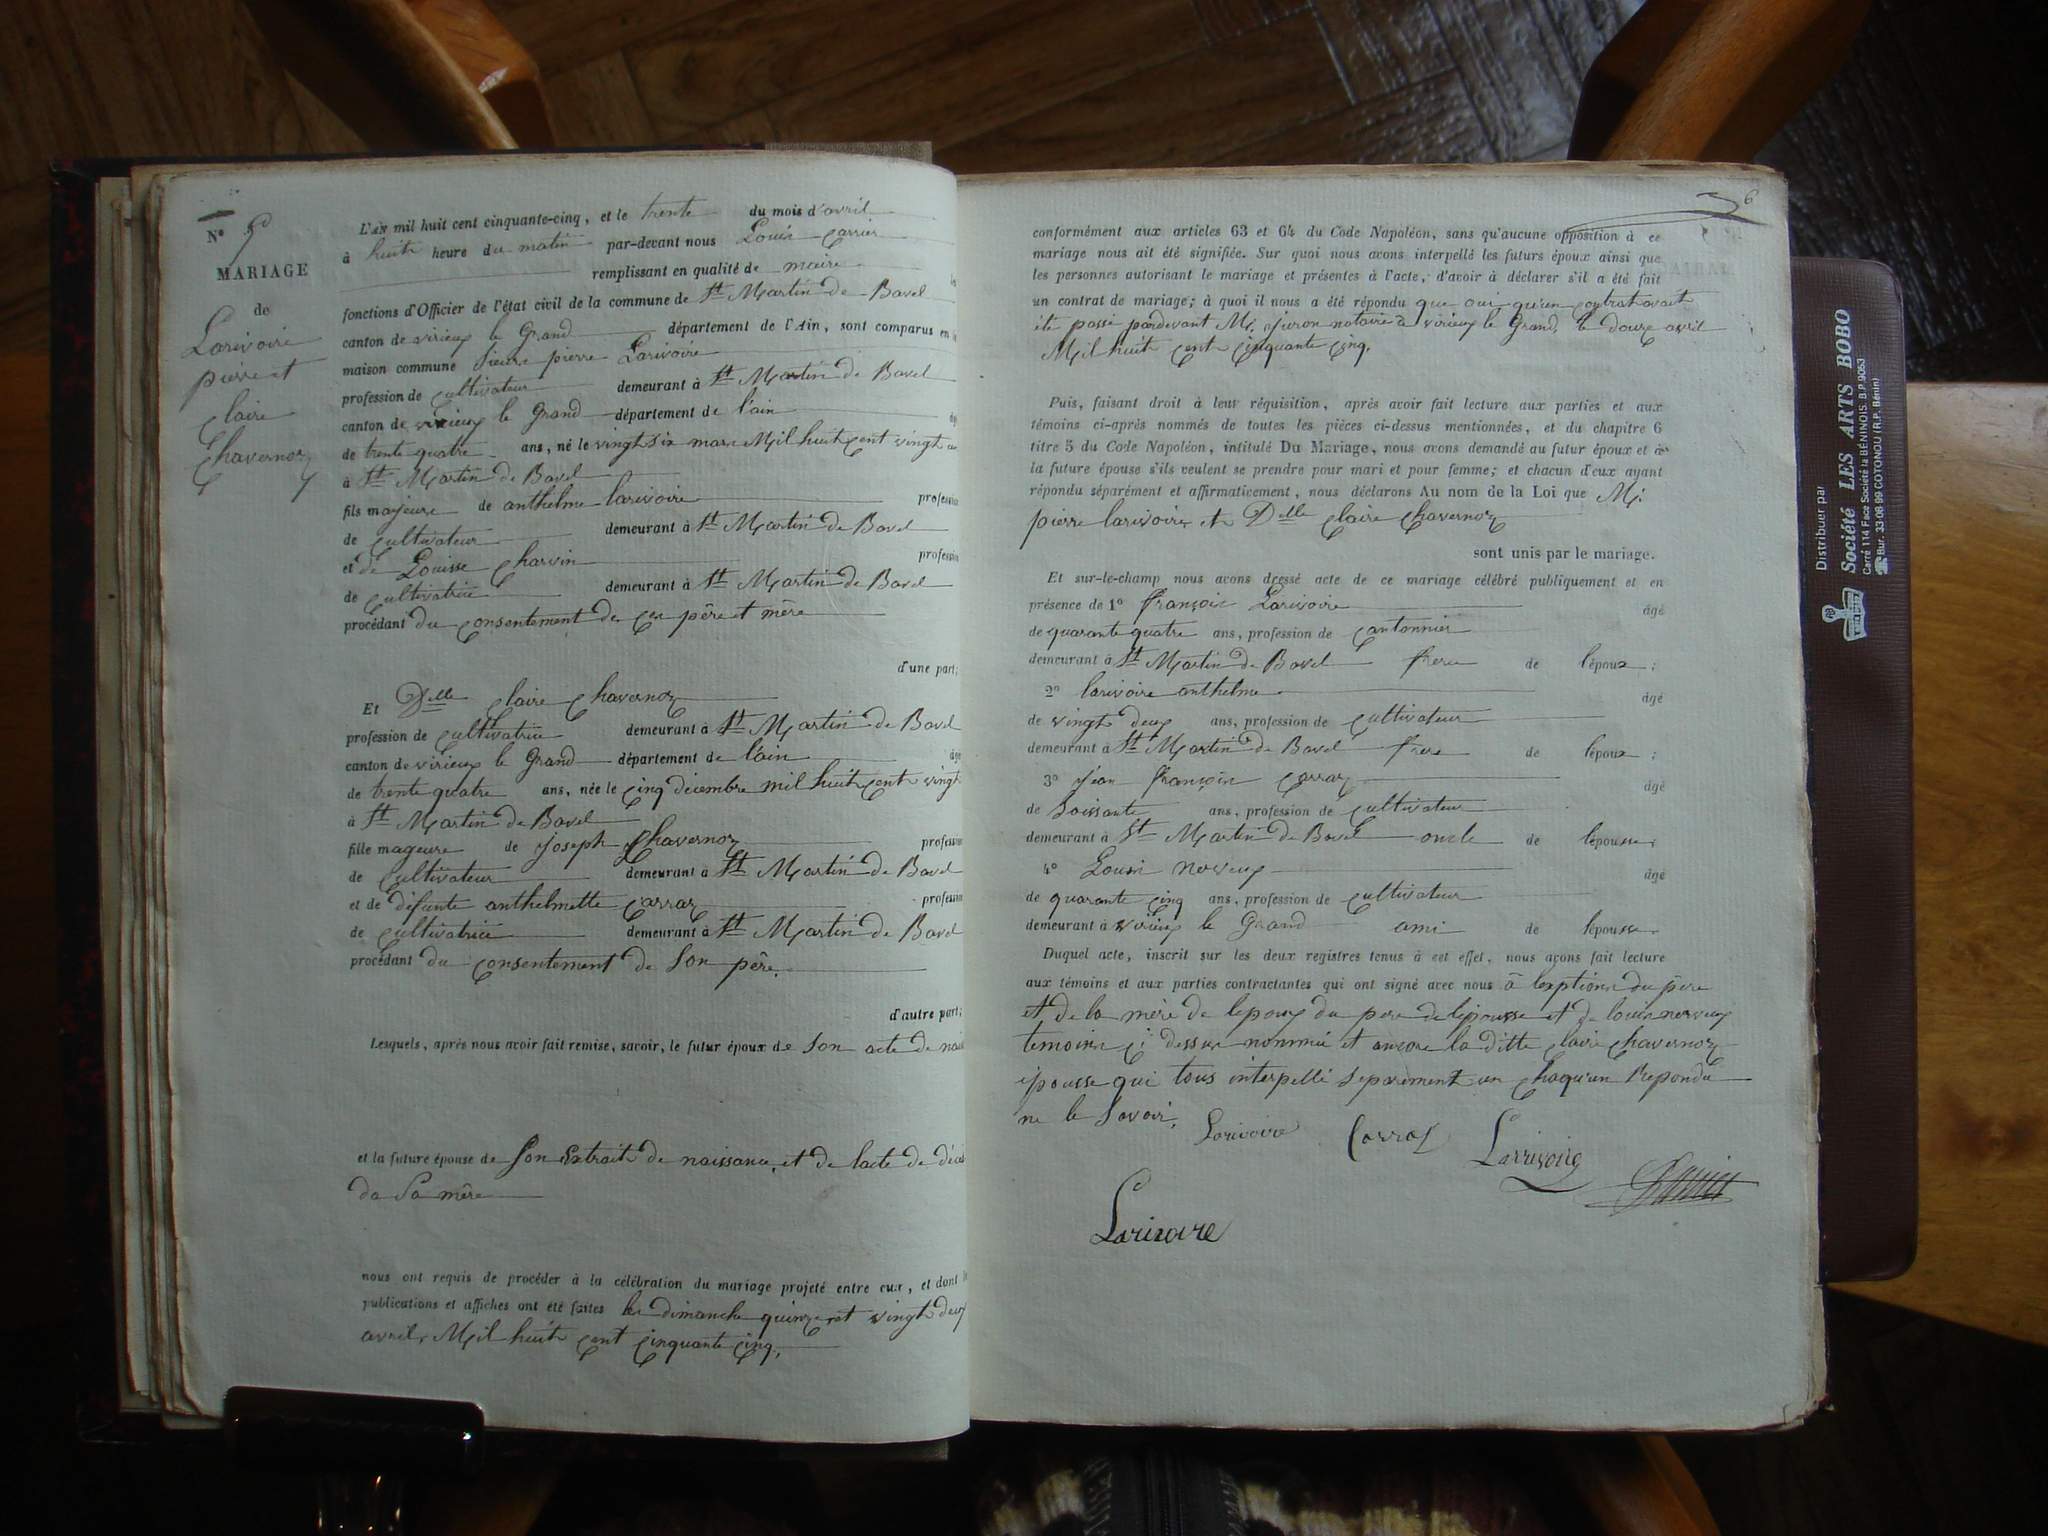 N° 9
MARIAGE
de
Larivoire
pierre et
claire
Chavernoz
L'AN mil huit cent cinquante-cinq, et le trente du mois d'avril
à huit heure du matin par-devant nous Louis Carrier
remplissant en qualité de maire les
fonctions d'Officier de l'état civil de la commune de St Martin de Bavel
canton de virieux le Grand département de l'Ain, sont comparus en la
maison commune sieur pierre Larivoire
profession de cultivateur demeurant à St Martin de Bavel
canton de virieux le Grand département de l'ain âgé
de trente quatre ans, né le vingt six mars Mil huit cent vingt un
à St Martin de Bavel
fils majeure de anthelme larivoire profession
de cultivateur demeurant à St Martin de Bavel
et de Louisse Charvin profession
de cultivatrice demeurant à St Martin de Bavel
procédant du consentement de ces père et mère
d'une part;
Et Dlle claire Chavernoz
profession de cultivatrice demeurant à St Martin de Bavel
canton de virieux le Grand département de l'ain âgé
de trente quatre ans, née le cinq décembre mil huit cent vingt
à St Martin de Bavel
fille mageure de joseph Chavernoz profession
de cultivateur demeurant à St Martin de Bavel
et de défunte anthelmette Carraz profession
de cultivatrice demeurant à St Martin de Bavel
procédant du consentement de Son père.
d'autre part;
Lesquels, après nous avoir fait remise, savoir, le futur époux de Son acte de nais
et la future épouse de Son Extrait de naissance, et de lacte de décè
da Sa mère
nous ont requis de procéder à la célébration du mariage projeté entre eux, et dont les
publications et affiches ont été faites les dimanche quinze et vingt deux
avril, Mil huit cent cinquante cinq.
6
conformément aux articles 63 et 64 du Code Napoléon, sans qu'aucune opposition à ce
mariage nous ait été signifiée. Sur quoi nous avons interpellé les futurs époux ainsi que
les personnes autorisant le mariage et présentes à l'acte, d'avoir à déclarer s'il a été fait
un contrat de mariage; à quoi il nous a été répondu que oui qu'un contrat avait
été passé pardevant Mr. juron notaire à virieux le Grand, le douze avril
Mil huit cent cinquante cinq.
Puis, faisant droit à leur réquisition, après avoir fait lecture aux parties et aux
témoins ci-après nommés de toutes les pièces ci-dessus mentionnées, et du chapitre 6
titre 5 du Code Napoléon, intitulé Du Mariage, nous avons demandé au futur époux et à
la future épouse s'ils veulent se prendre pour mari et pour femme; et chacun d'eux ayant
répondu séparément et affirmativement, nous déclarons Au nom de la Loi que Mr
pierre larivoire, et Dlle claire Chavernoz
sont unis par le mariage.
Et sur-le-champ nous avons dressé acte de ce mariage célébré publiquement et en
présence de 1° françois Larivoire âgé
de quarante quatre ans, profession de Cantonnier
demeurant à St Martin de Bavel frere de l'époux;
2° larivoire anthelme âgé
de vingt deux ans, profession de cultivateur
demeurant à St Martin de Bavel frere de l'époux;
3° jean françois Carraz âgé
de Soissante ans, profession de cultivateur
demeurant à St Martin de Bavel oncle de lépousse;
4° Louis nerveux âgé
de quarante cinq ans, profession de cultivateur
demeurant à virieux le Grand ami de lépousse.
Duquel acte, inscrit sur les deux registres tenus à cet effet, nous avons fait lecture
aux témoins et aux parties contractantes qui ont signé avec nous à lexptions du père
et de la mère de lepoux du pere de lépousse et de louis nerveux
temoins ci dessus nommé et ancore la ditte claire Chavernoz
épousse qui tous interpellé separément un chaqu'un Repondu
ne le Savoir.
Larivoire Carraz Larrivoire
Carrier
Larivoire
Distribuer par
Société LES ARTS BOBO
Carré 114 Face Société la BÉNINOIS. B.P 9063
Bur. 33 08 99 COTONOU (R.P. Bénin)